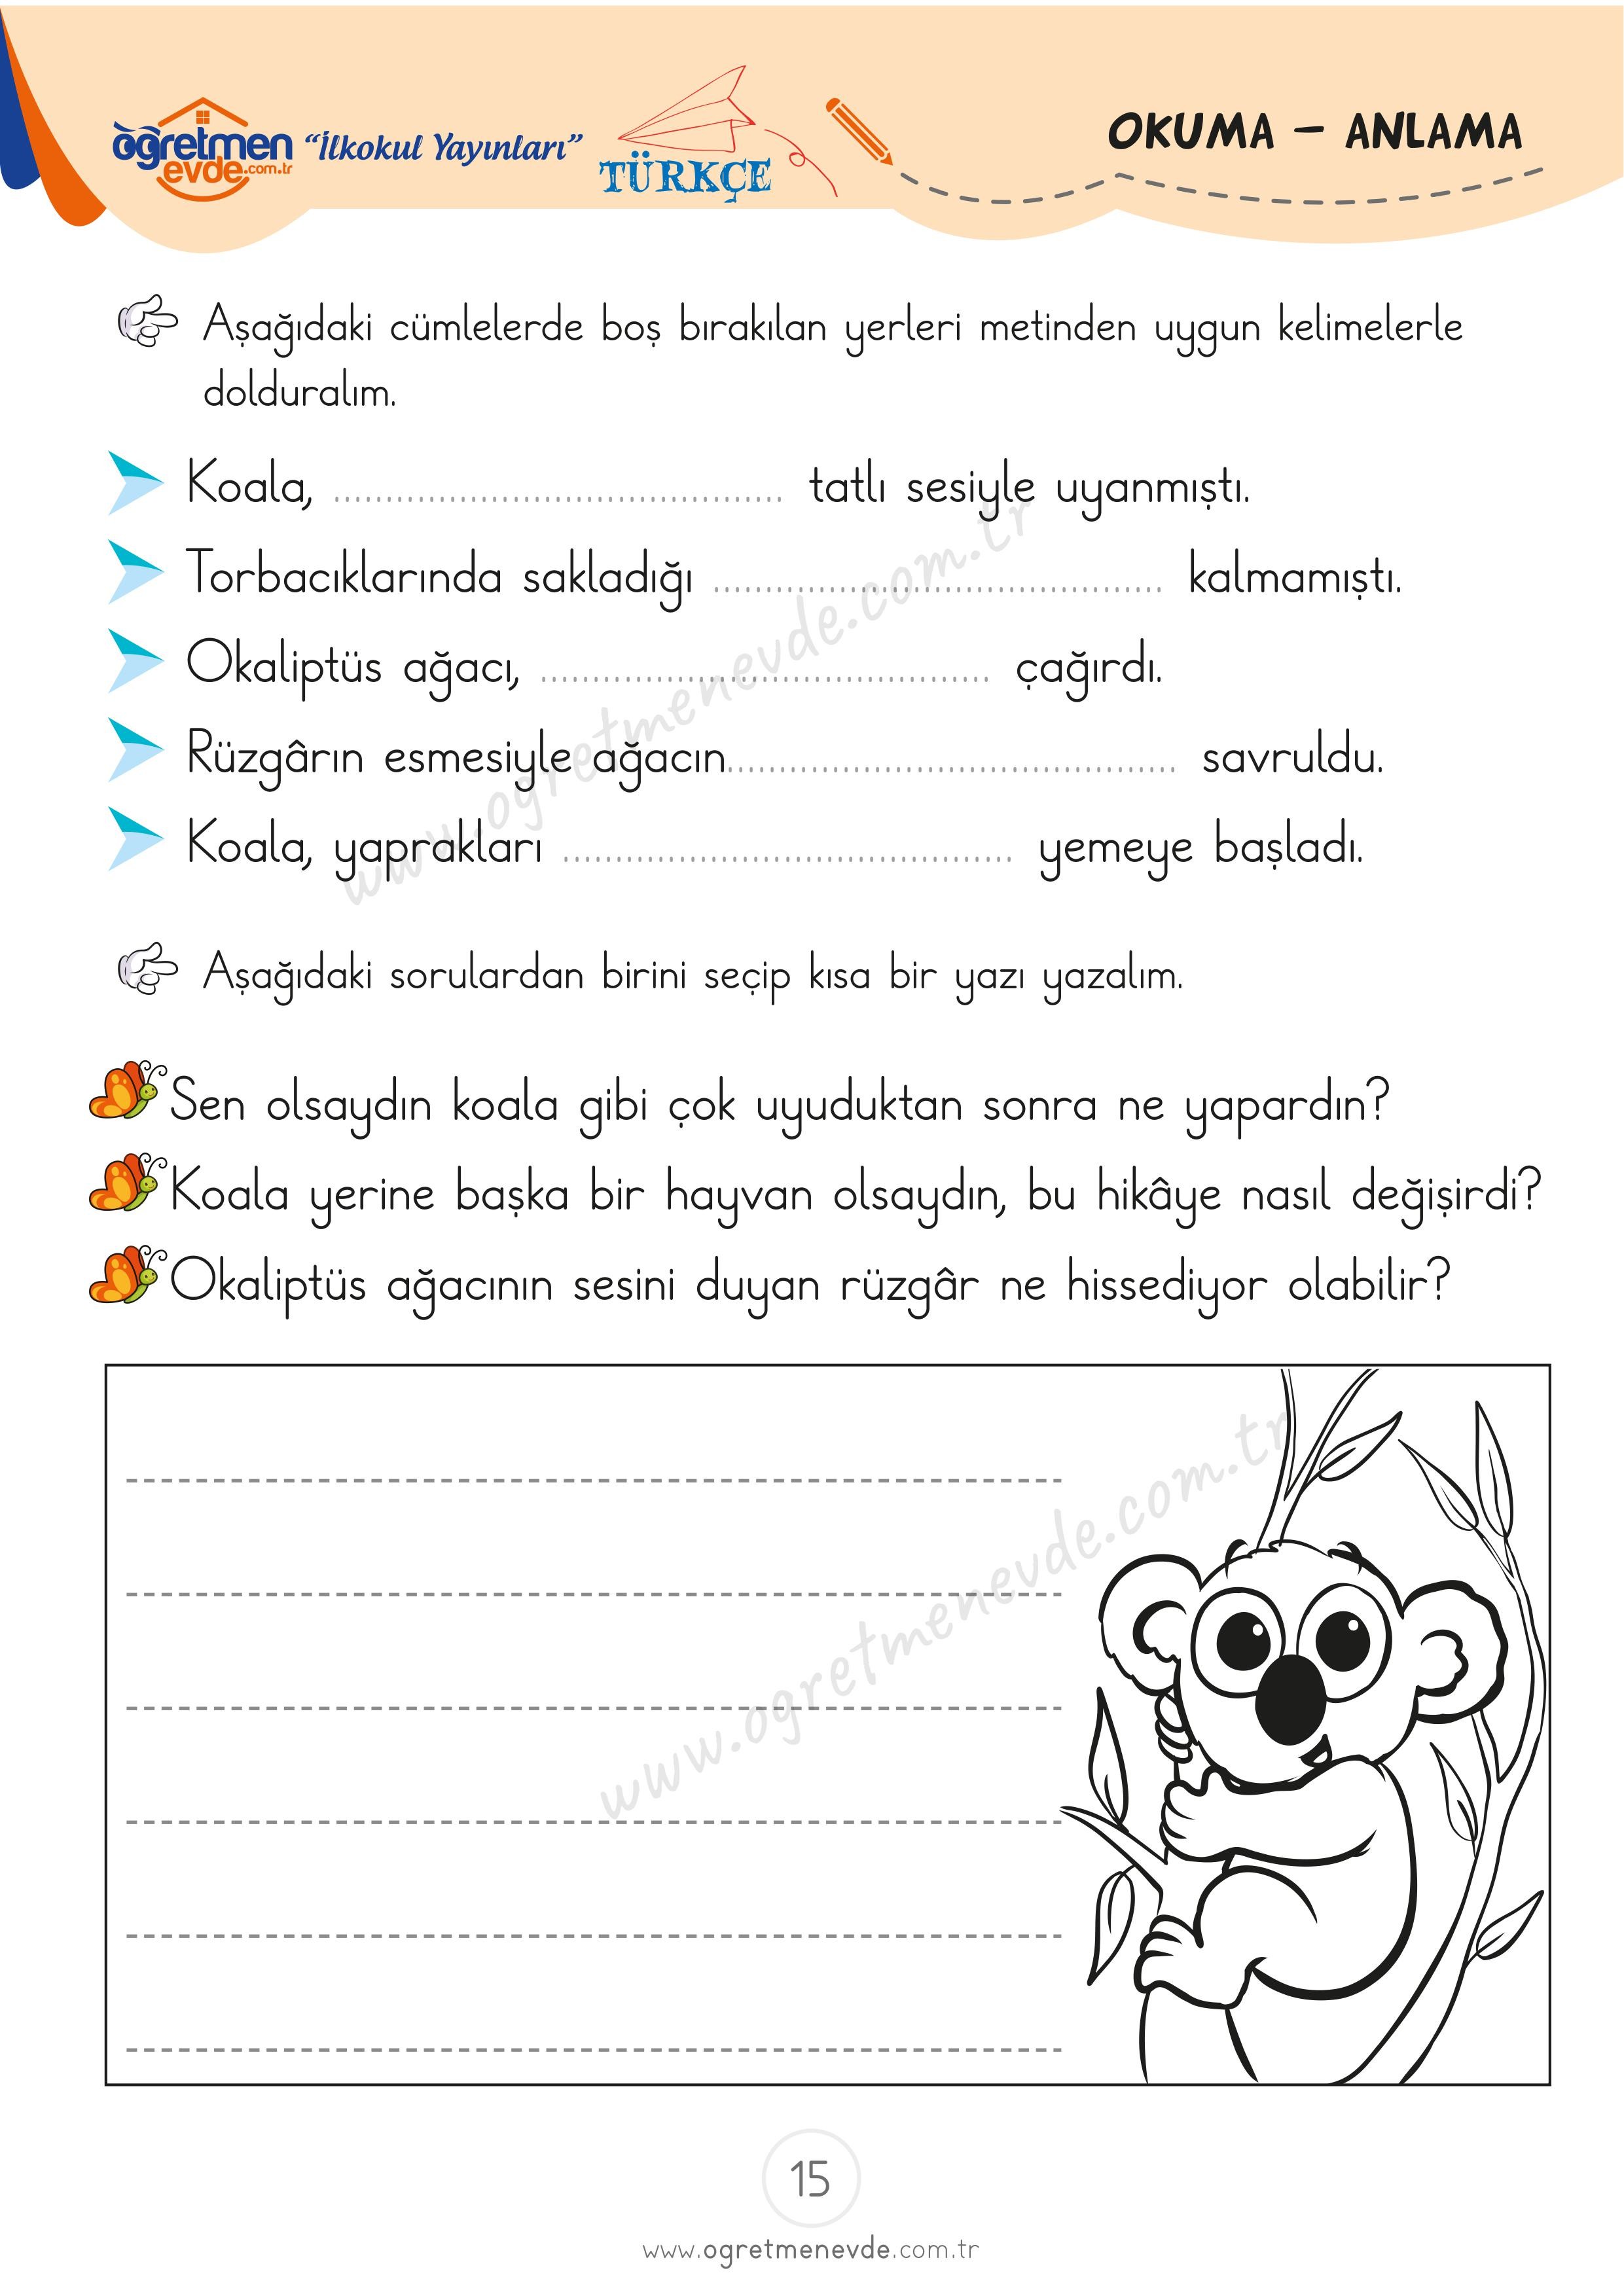 öğretmen "İlkokul Yayınları"
evde.com.tr
TÜRKÇE
OKUMA – ANLAMA
Aşağıdaki cümlelerde boş bırakılan yerleri metinden uygun kelimelerle
dolduralım.
Koala, ........................................... tatlı sesiyle uyanmıştı.
Torbacıklarında sakladığı ........................................... kalmamıştı.
Okaliptüs ağacı, ........................................... çağırdı.
Rüzgârın esmesiyle ağacın........................................... savruldu.
Koala, yaprakları ........................................... yemeye başladı.
www.ogretmenevde.com.tr
Aşağıdaki sorulardan birini seçip kısa bir yazı yazalım.
Sen olsaydın koala gibi çok uyuduktan sonra ne yapardın?
Koala yerine başka bir hayvan olsaydın, bu hikâye nasıl değişirdi?
Okaliptüs ağacının sesini duyan rüzgâr ne hissediyor olabilir?
www.ogretmenevde.com.tr
15
www.ogretmenevde.com.tr